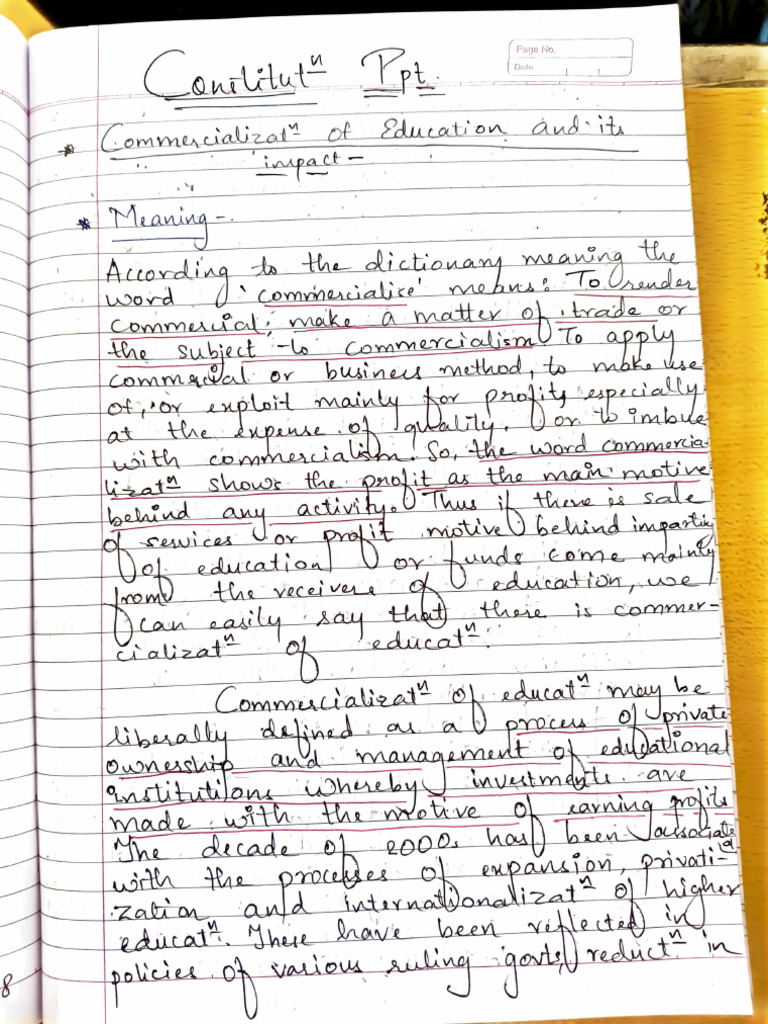 Page No.
Date
Constitutⁿ Ppt.
* Commercializatⁿ of Education and its
impact -
* Meaning -
According to the dictionary meaning the
word 'commercialise' means: To render
commercial; make a matter of trade or
the subject to commercialism. To apply
commercial or business method, to make use
of, or exploit mainly for profits especially
at the expense of quality. Or to imbue
with commercialism. So, the word commercia-
lizatⁿ shows the profit as the main motive
behind any activity. Thus if there is sale
of services or profit motive behind imparting
of education or funds come mainly
from the receivers of education, we
can easily say that there is commer-
cializatⁿ of educatⁿ.
Commercializatⁿ of educatⁿ may be
liberally defined as a process of private
ownership and management of educational
institutions whereby investments are
made with the motive of earning profits
The decade of 2000s has been associated
with the processes of expansion, privati-
zation and internationalizatⁿ of higher
educatⁿ. These have been reflected in
policies of various ruling govts, reductⁿ in
8